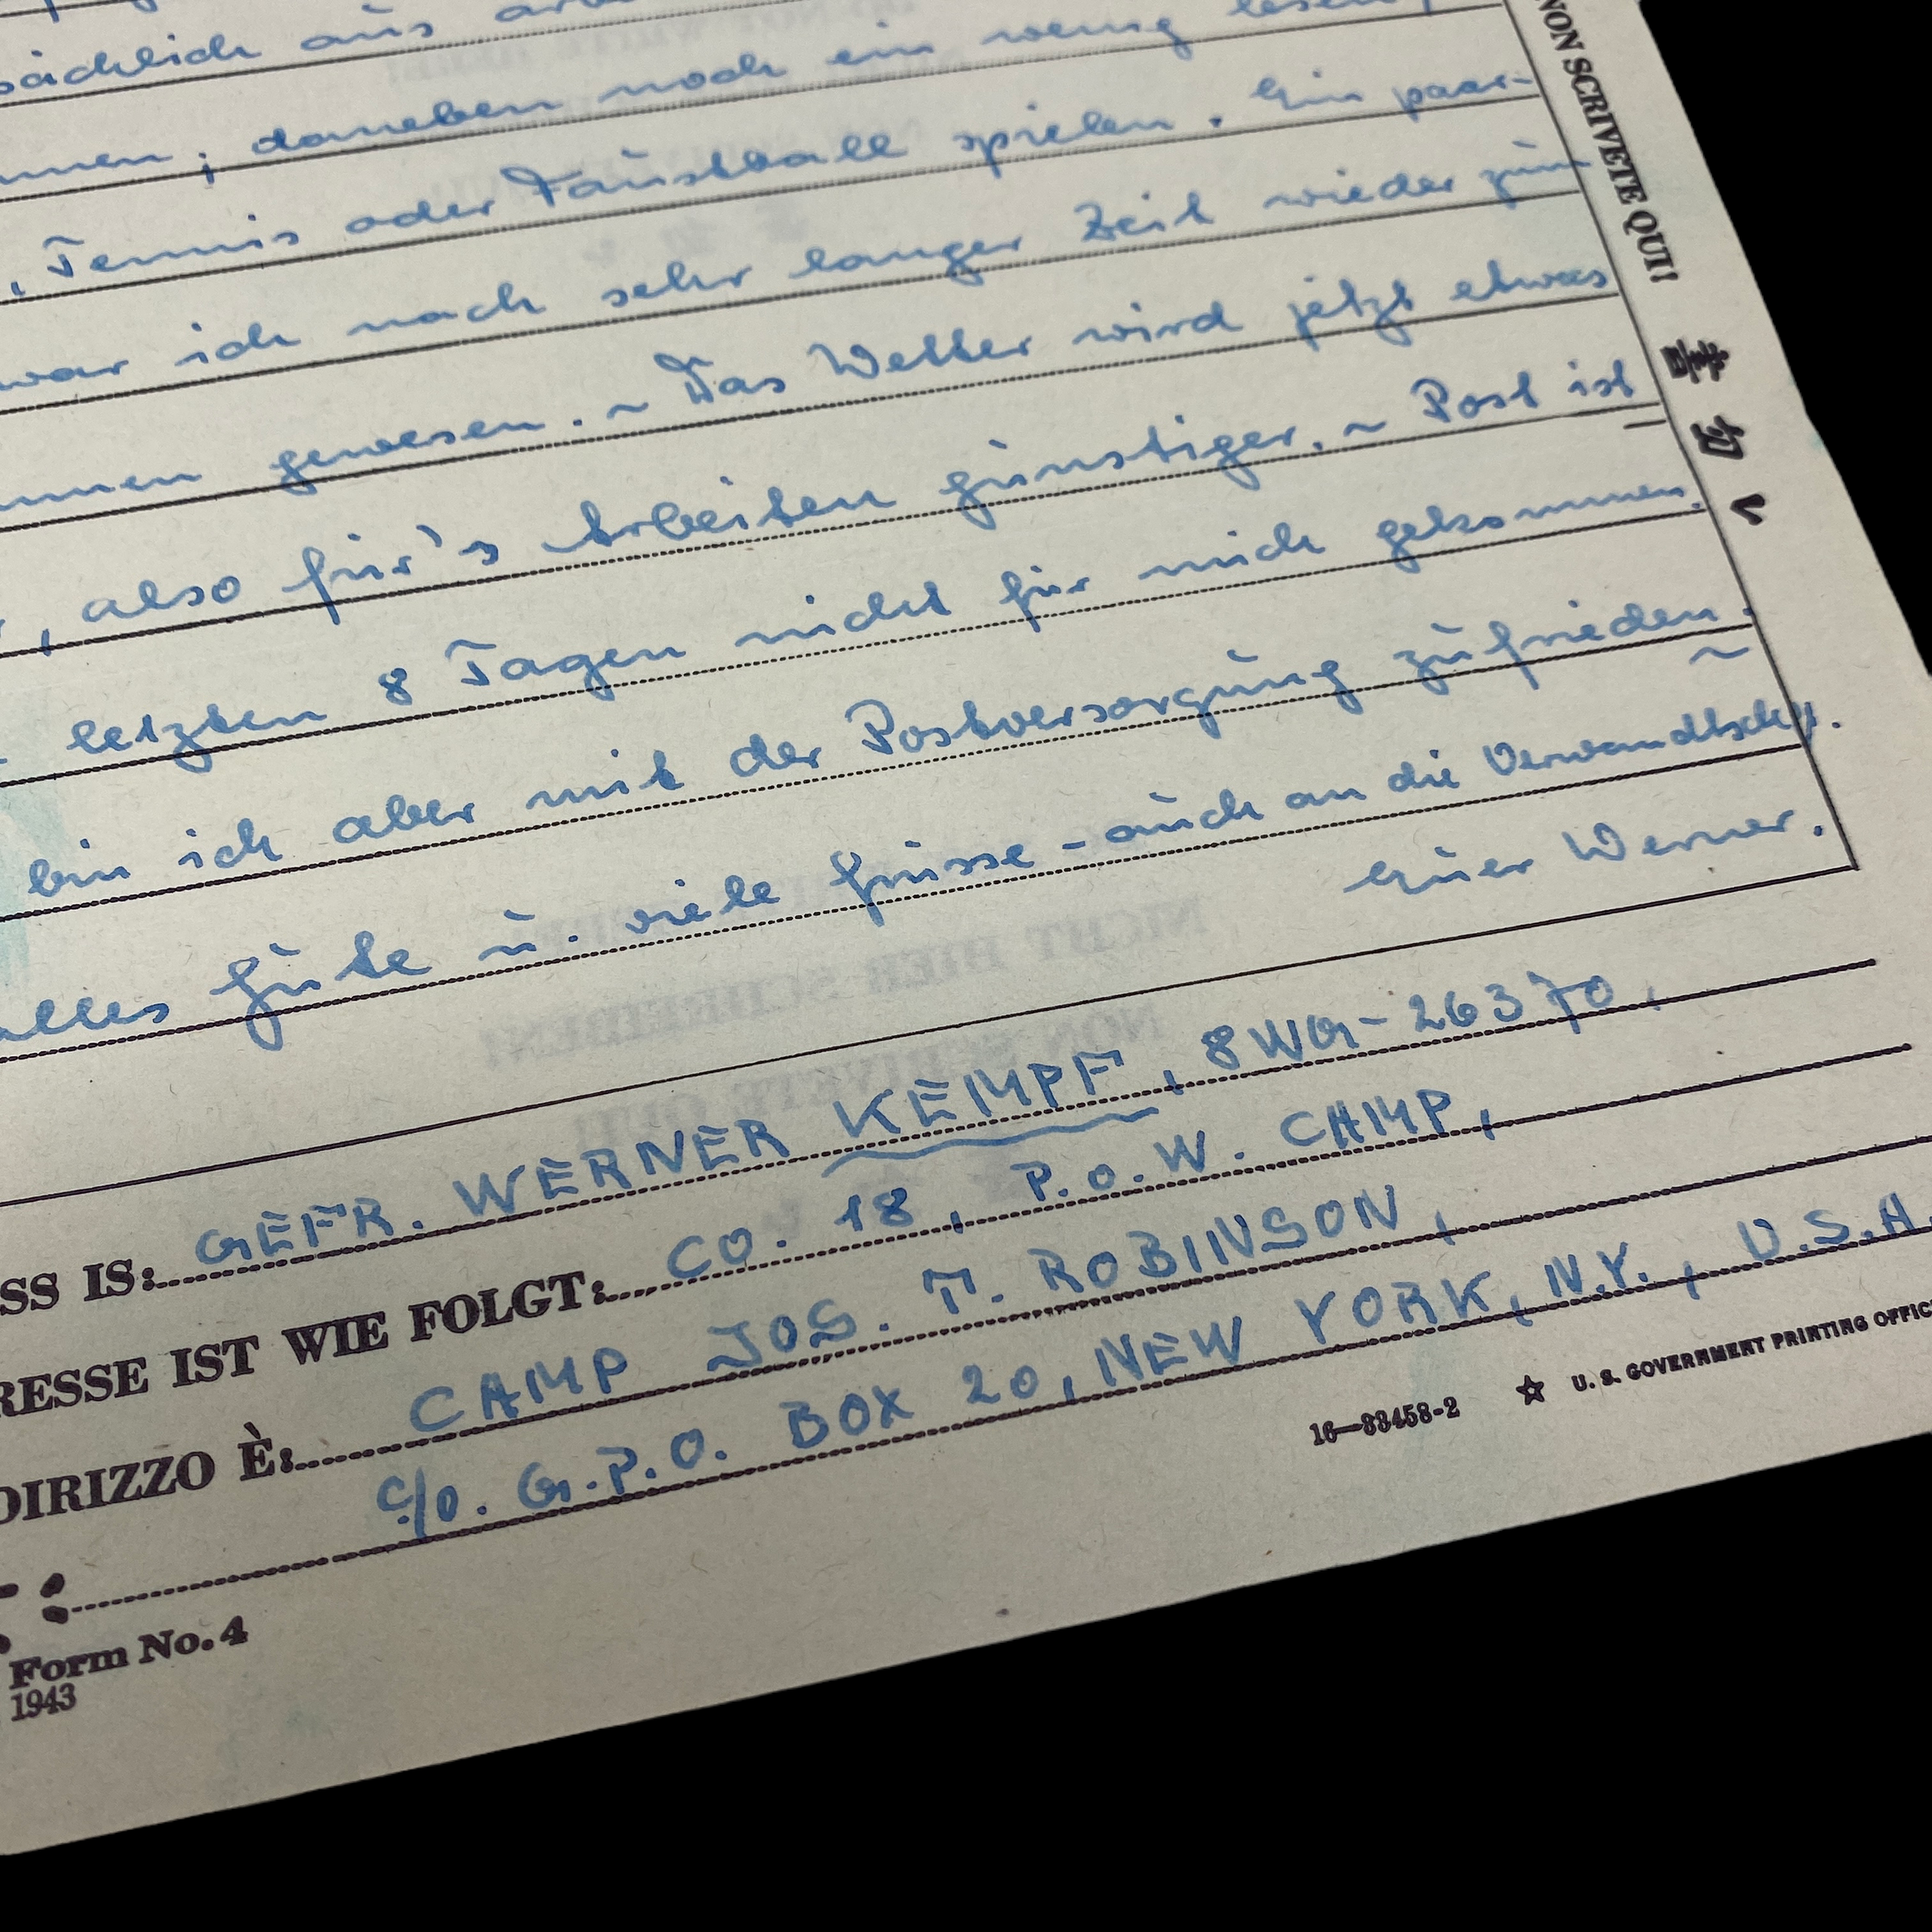 sächlich aus
nnen; daneben noch ein wenig lesen,
, Tennis oder Faustball spielen. Ein paar-
war ich nach sehr langer Zeit wieder zum
nnen gewesen. ~ Das Wetter wird jetzt etwas
, also für's Arbeiten günstiger. ~ Post ist
letzten 8 Tagen nicht für mich gekommen.
bin ich aber mit der Postversorgung zufrieden. ~
alles Gute u. viele Grüsse - auch an die Verwandtsch.
Euer Werner.
SS IS: GEFR. WERNER KEMPF, 8WG-26370,
RESSE IST WIE FOLGT: CO. 18, P.O.W. CAMP,
DIRIZZO È: CAMP JOS. T. ROBINSON,
c/o. G.P.O. BOX 20, NEW YORK, N.Y., U.S.A.
Form No. 4
1943
16—33458-2 ☆ U. S. GOVERNMENT PRINTING OFFIC
NON SCRIVETE QUI!